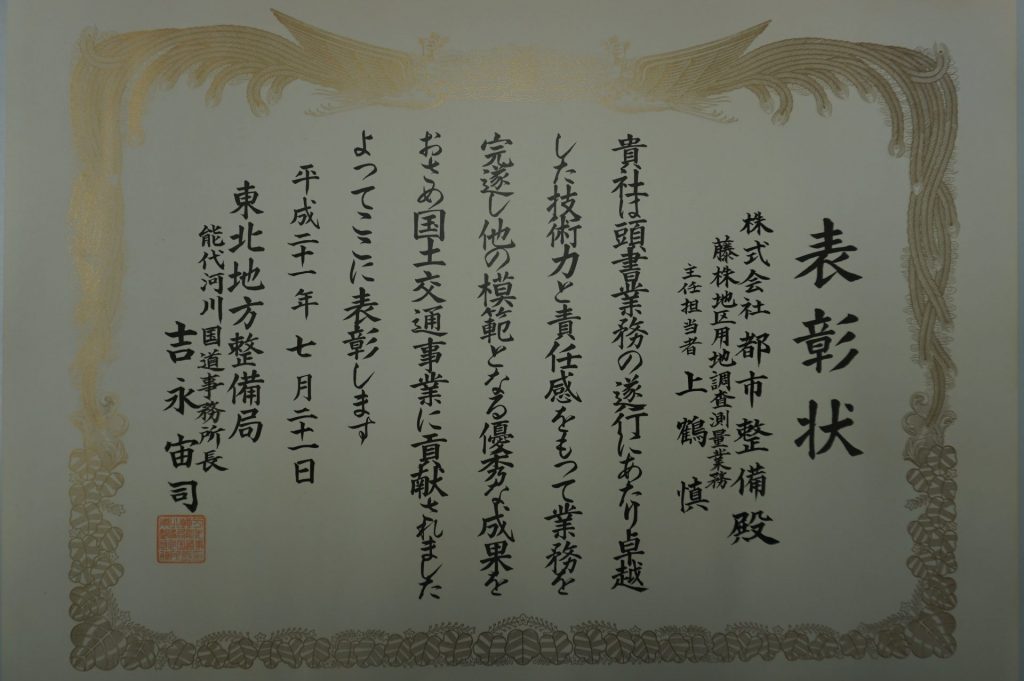 表彰状
株式会社都市整備殿
藤株地区用地調査測量業務
主任担当者 上鶴慎
貴社は頭書業務の遂行にあたり卓越
した技術力と責任感をもって業務を
完遂し他の模範となる優秀な成果を
おさめ国土交通事業に貢献されました
よってここに表彰します
平成二十一年七月二十一日
東北地方整備局
能代河川国道事務所長
吉永宙司